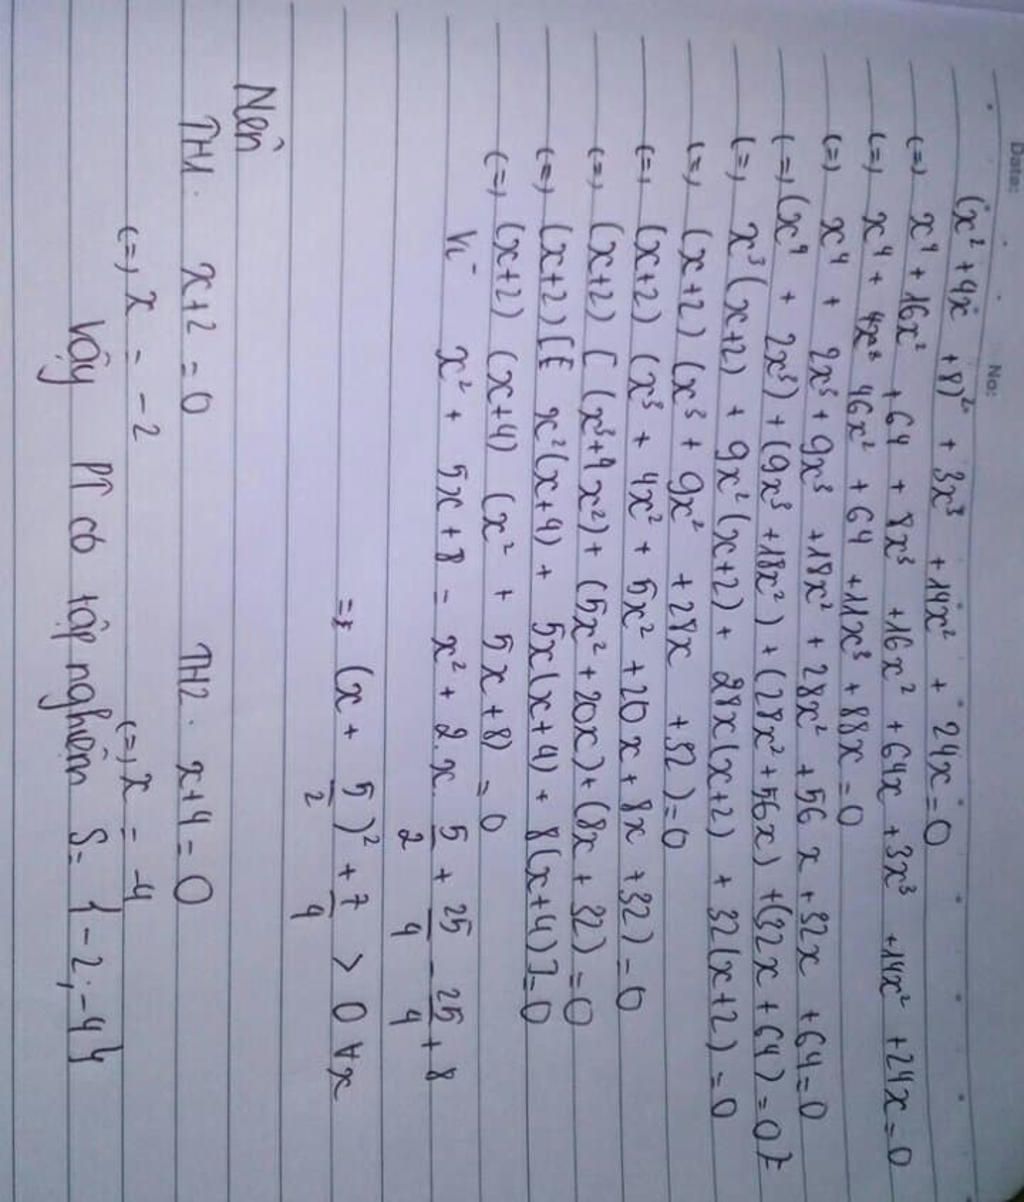 Date:
No:
(x² + 4x + 8)² + 3x³ + 14x² + 24x = 0
(=) x⁴ + 16x² + 64 + 8x³ + 16x² + 64x + 3x³ + 14x² + 24x = 0
(=) x⁴ + 46x² + 64 + 11x³ + 88x = 0
(=) x⁴ + 2x³ + 9x³ + 18x² + 28x² + 56x + 32x + 64 = 0
(=) (x⁴ + 2x³) + (9x³ + 18x²) + (28x² + 56x) + (32x + 64) = 0
(=) x³(x+2) + 9x²(x+2) + 28x(x+2) + 32(x+2) = 0
(=) (x+2) (x³ + 9x² + 28x + 32) = 0
(=) (x+2) (x³ + 4x² + 5x² + 20x + 8x + 32) = 0
(=) (x+2) [(x³+4x²) + (5x² + 20x) + (8x + 32) = 0
(=) (x+2) [x²(x+4) + 5x(x+4) + 8(x+4)] = 0
(=) (x+2) (x+4) (x² + 5x + 8) = 0
Vì x² + 5x + 8 = x² + 2.x 5/2 + 25/4 - 25/4 + 8
= (x + 5/2)² + 7/4 > 0 ∀x
Nên
TH1. x+2 = 0 TH2. x+4 = 0
(=) x = -2 (=) x = -4
Vậy PT có tập nghiệm S = {-2; -4}